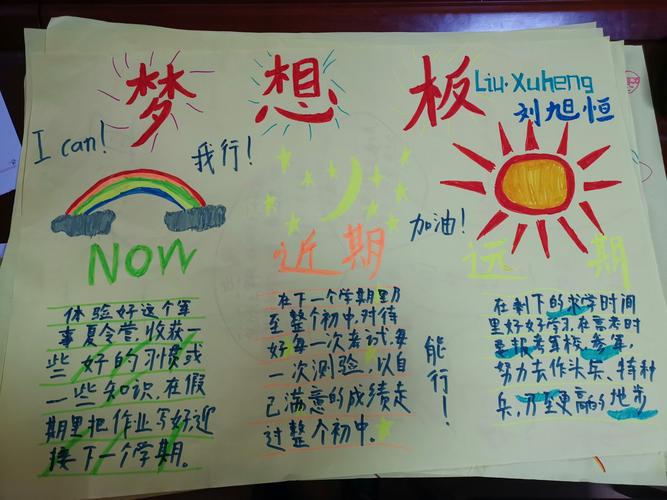 梦想板
Liu·Xuheng
刘旭恒
I can!
我行!
加油!
NOW
体验好这个军
事夏令营,收获一
些好的习惯或
一些知识,在假
期里把作业写好,迎
接下一个学期。
近期
在下一个学期里乃
至整个初中,对待
好每一次考试,每
一次测验,以自
己满意的成绩走
过整个初中。
能行!
远期
在剩下的求学时间
里好好学习,在高考时
要报考军校,参军,
努力去作尖兵、特种
兵,乃至更高的地步